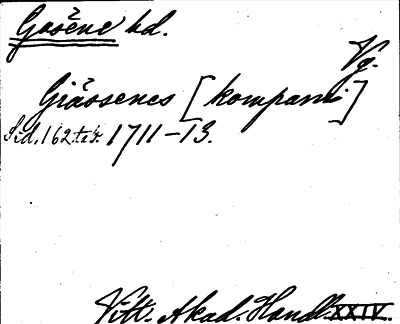 Gosene hd.
Vg.
Giässenes [kompani]
Sid. 162 1711-13.
Vitt. Akad. Handl. XXIV.